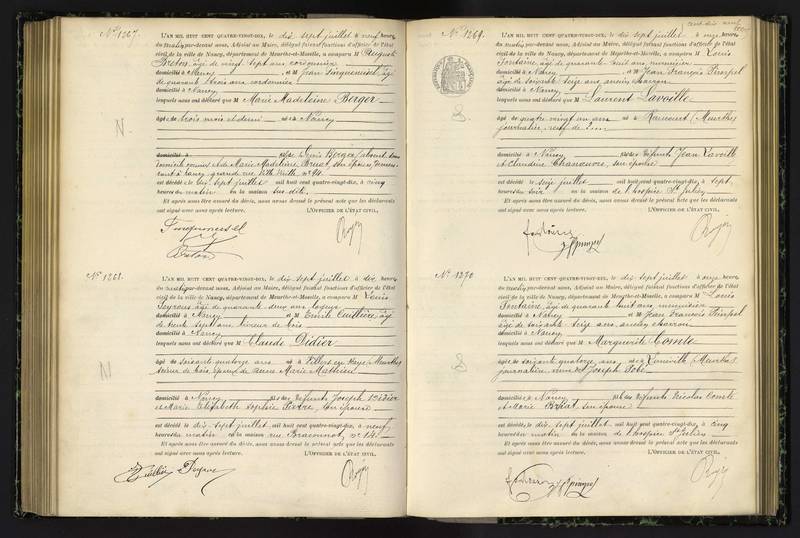 N° 1267.
L'AN MIL HUIT CENT QUATRE-VINGT-DIX, le dix sept juillet à neuf heures
du matin, par-devant nous, Adjoint au Maire, délégué faisant fonctions d'officier de l'état
civil de la ville de Nancy, département de Meurthe-et-Moselle, a comparu M August
Breton, âgé de vingt sept ans cordonnier
domicilié à Nancy et M Jean âgé
de quarante trois ans cordonnier
domicilié à Nancy
lesquels nous ont déclaré que M Marie Madeleine Berger
âgé de trois mois et demi né à Nancy
domicilié à fille de Denis Berger, absent sans
domicile connu et de Marie Madeleine son épouse,
à Nancy, grande rue Ville Vieille, n° 94.
est décédé le dix sept juillet mil huit cent quatre-vingt-dix, à cinq
heures du matin en la maison sus dite.
Et après nous être assuré du décès, nous avons dressé le présent acte que les déclarants
ont signé avec nous après lecture. L'OFFICIER DE L'ÉTAT CIVIL,
N
Breton
N° 1268.
L'AN MIL HUIT CENT QUATRE-VINGT-DIX, le dix sept juillet à dix heures
du matin, par-devant nous, Adjoint au Maire, délégué faisant fonctions d'officier de l'état
civil de la ville de Nancy, département de Meurthe-et-Moselle, a comparu M Louis
âgé de quarante deux ans
domicilié à Nancy et M Emile Cuillière, âgé
de trente sept ans de bois
domicilié à Nancy
lesquels nous ont déclaré que M Claude Didier
âgé de soixante quatorze ans né à Villers en Haye (Meurthe)
de bois, époux de Marie Mathieu
domicilié à Nancy fils de défunts Joseph Didier
et Marie Elisabeth Pierre, son épouse
est décédé le dix sept juillet mil huit cent quatre-vingt-dix, à neuf
heures du matin en la maison rue Braconnot, n° 14
Et après nous être assuré du décès, nous avons dressé le présent acte que les déclarants
ont signé avec nous après lecture. L'OFFICIER DE L'ÉTAT CIVIL,
N
cent dix neuf
N° 1269.
L'AN MIL HUIT CENT QUATRE-VINGT-DIX, le dix sept juillet à onze heures
du matin, par-devant nous, Adjoint au Maire, délégué faisant fonctions d'officier de l'état
civil de la ville de Nancy, département de Meurthe-et-Moselle, a comparu M Louis
Fontaine, âgé de quarante huit ans, menuisier
domicilié à Nancy et M Jean François
âgé de soixante seize ans, ancien charron
domicilié à Nancy
lesquels nous ont déclaré que M Laurent Lavoille
âgé de quatre vingt un ans né à (Meurthe)
journalier, veuf de
domicilié à Nancy fils de défunts Jean Lavoille
et Claudine son épouse
est décédé le seize juillet mil huit cent quatre-vingt-dix, à sept
heures du soir en la maison de l'hospice St Julien
Et après nous être assuré du décès, nous avons dressé le présent acte que les déclarants
ont signé avec nous après lecture. L'OFFICIER DE L'ÉTAT CIVIL,
N° 1270
L'AN MIL HUIT CENT QUATRE-VINGT-DIX, le dix sept juillet à onze heures
du matin, par-devant nous, Adjoint au Maire, délégué faisant fonctions d'officier de l'état
civil de la ville de Nancy, département de Meurthe-et-Moselle, a comparu M Louis
Fontaine, âgé de quarante huit ans, menuisier
domicilié à Nancy et M Jean François
âgé de soixante seize ans, ancien charron
domicilié à Nancy
lesquels nous ont déclaré que M Marguerite Comte
âgé de soixante quatorze ans, née à (Meurthe)
journalière, veuve de Joseph
domicilié à Nancy fille de défunts Nicolas Comte
et Marie son épouse
est décédé le dix sept juillet mil huit cent quatre-vingt-dix, à cinq
heures du matin en la maison de l'hospice St Julien
Et après nous être assuré du décès, nous avons dressé le présent acte que les déclarants
ont signé avec nous après lecture. L'OFFICIER DE L'ÉTAT CIVIL,